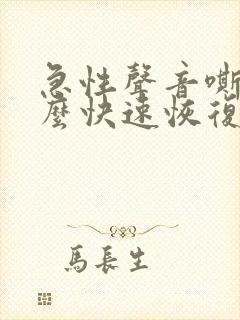 急性聲音嘶
麼快速恢復
馬長生